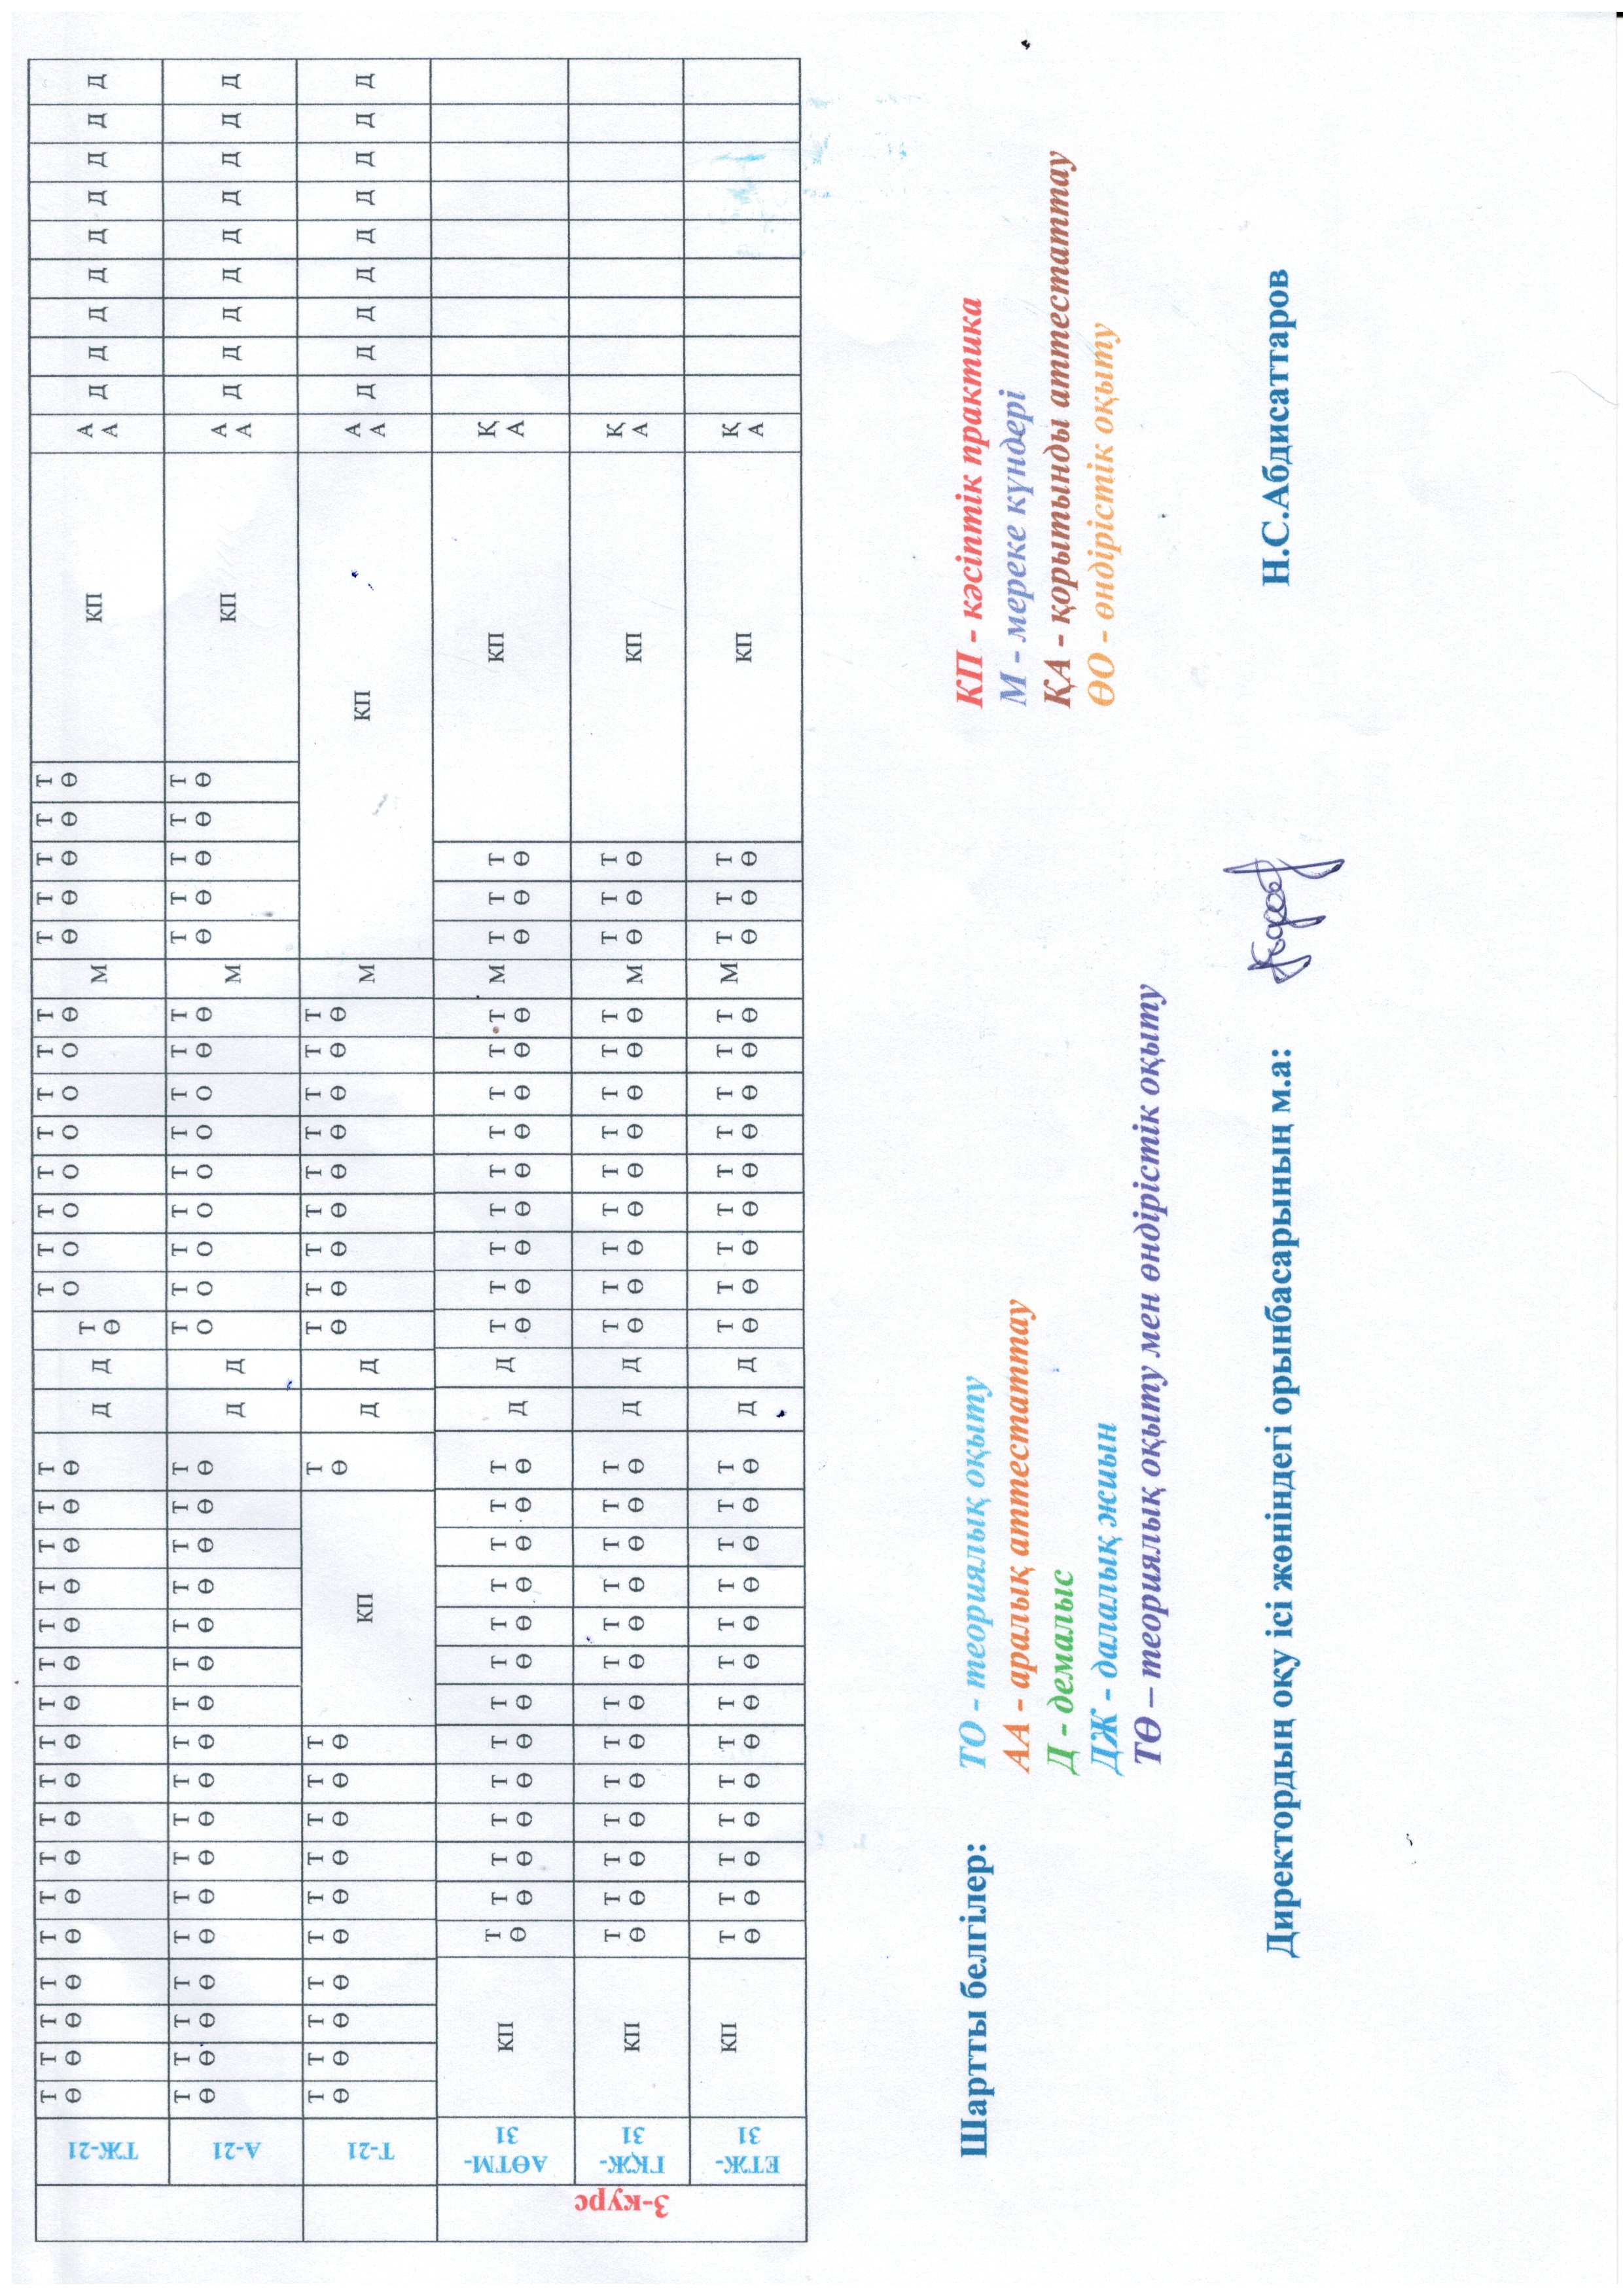 ТЖ-21 ТӨ ТӨ ТӨ ТӨ ТӨ ТӨ ТӨ ТӨ ТӨ ТӨ ТӨ ТӨ ТӨ ТӨ ТӨ ТӨ ТӨ Д Д ТӨ ТО ТО ТО ТО ТО ТО ТО ТӨ М ТӨ ТӨ ТӨ ТӨ ТӨ КП АА Д Д Д Д Д Д Д Д Д
А-21 ТӨ ТӨ ТӨ ТӨ ТӨ ТӨ ТӨ ТӨ ТӨ ТӨ ТӨ ТӨ ТӨ ТӨ ТӨ ТӨ ТӨ Д Д ТО ТО ТО ТО ТО ТО ТО ТӨ ТӨ М ТӨ ТӨ ТӨ ТӨ ТӨ КП АА Д Д Д Д Д Д Д Д Д
Т-21 ТӨ ТӨ ТӨ ТӨ ТӨ ТӨ ТӨ ТӨ ТӨ ТӨ КП ТӨ Д Д ТӨ ТӨ ТӨ ТӨ ТӨ ТӨ ТӨ ТӨ ТӨ М КП АА Д Д Д Д Д Д Д Д Д
3-курс
АӨТМ-31 КП ТӨ ТӨ ТӨ ТӨ ТӨ ТӨ ТӨ ТӨ ТӨ ТӨ ТӨ ТӨ ТӨ Д Д ТӨ ТӨ ТӨ ТӨ ТӨ ТӨ ТӨ ТӨ ТӨ М ТӨ ТӨ ТӨ КП ҚА
ГҚЖ-31 КП ТӨ ТӨ ТӨ ТӨ ТӨ ТӨ ТӨ ТӨ ТӨ ТӨ ТӨ ТӨ ТӨ Д Д ТӨ ТӨ ТӨ ТӨ ТӨ ТӨ ТӨ ТӨ ТӨ М ТӨ ТӨ ТӨ КП ҚА
ЕТЖ-31 КП ТӨ ТӨ ТӨ ТӨ ТӨ ТӨ ТӨ ТӨ ТӨ ТӨ ТӨ ТӨ ТӨ Д Д ТӨ ТӨ ТӨ ТӨ ТӨ ТӨ ТӨ ТӨ ТӨ М ТӨ ТӨ ТӨ КП ҚА
Шартты белгілер: ТО - теориялық оқыту КП - кәсіптік практика
АА - аралық аттестаттау М - мереке күндері
Д - демалыс ҚА - қорытынды аттестаттау
ДЖ - далалық жиын ӨО - өндірістік оқыту
ТӨ – теориялық оқыту мен өндірістік оқыту
Директордың оқу ісі жөніндегі орынбасарының м.а: Н.С.Абдисаттаров